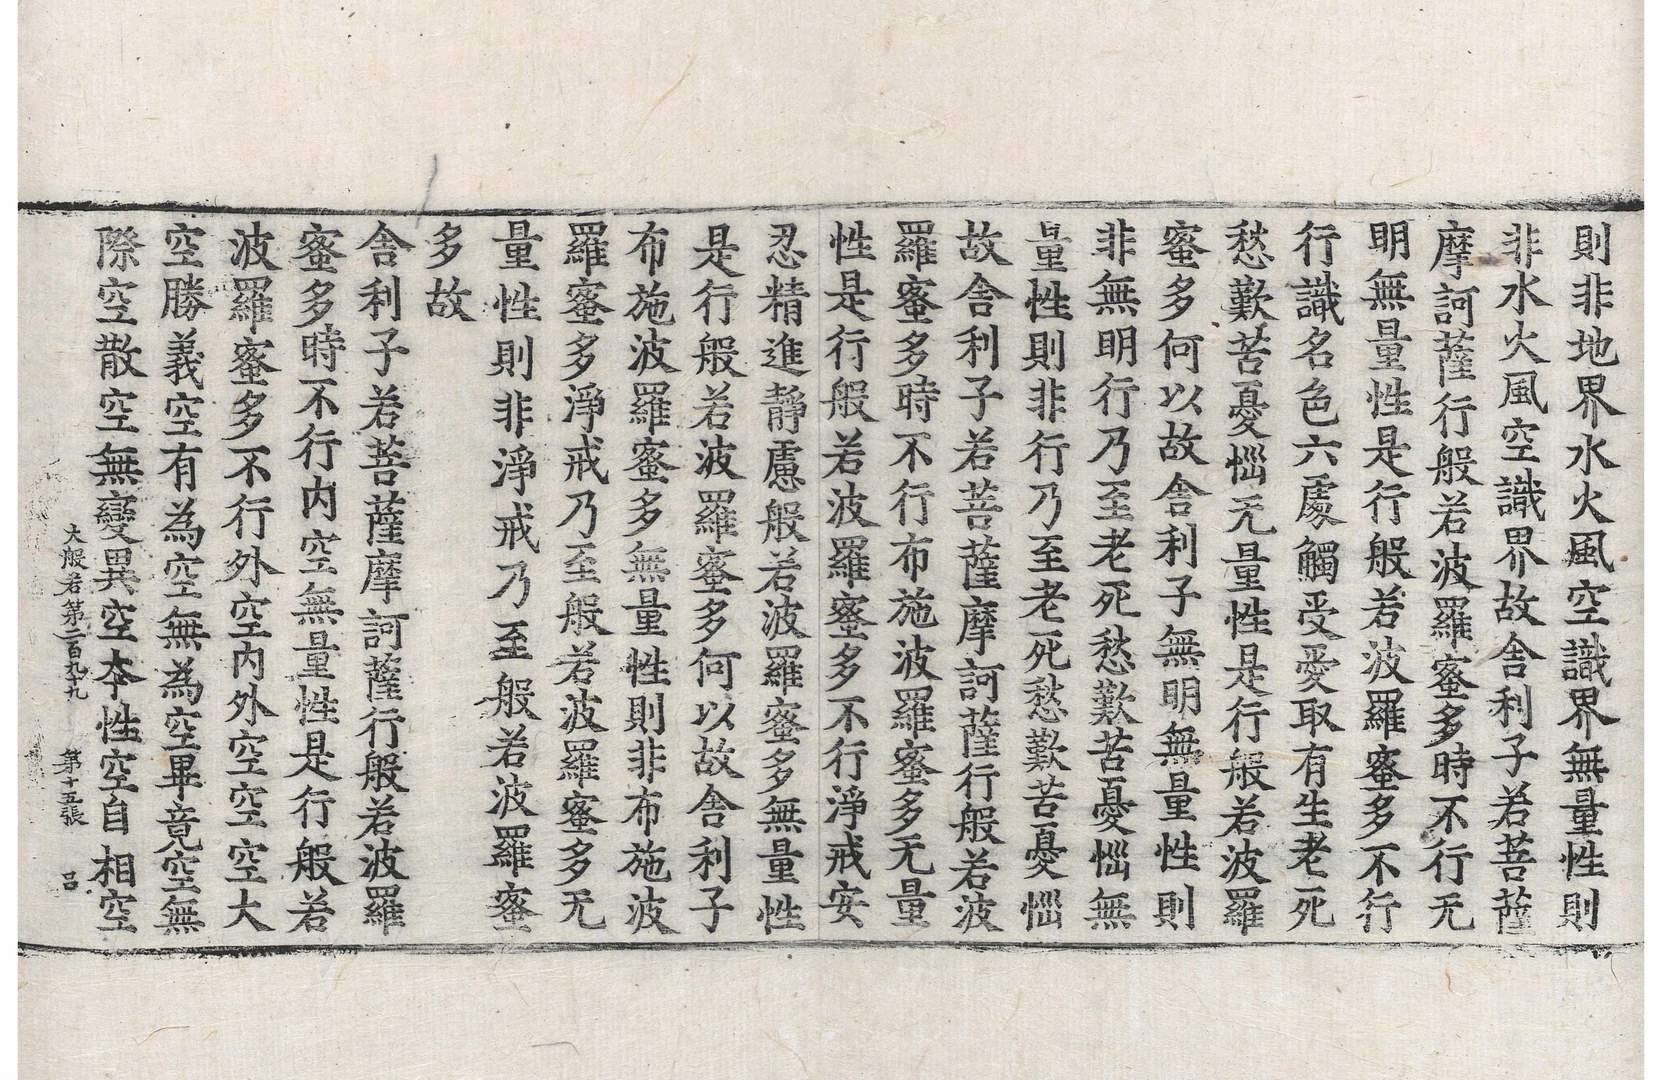 則非地界水火風空識界無量性則
非水火風空識界故舍利子若菩薩
摩訶薩行般若波羅蜜多時不行无
明無量性是行般若波羅蜜多不行
行識名色六處觸受愛取有生老死
愁歎苦憂惱无量性是行般若波羅
蜜多何以故舍利子無明無量性則
非無明行乃至老死愁歎苦憂惱無
量性則非行乃至老死愁歎苦憂惱
故舍利子若菩薩摩訶薩行般若波
羅蜜多時不行布施波羅蜜多无量
性是行般若波羅蜜多不行淨戒安
忍精進靜慮般若波羅蜜多無量性
是行般若波羅蜜多何以故舍利子
布施波羅蜜多無量性則非布施波
羅蜜多淨戒乃至般若波羅蜜多无
量性則非淨戒乃至般若波羅蜜
多故
舍利子若菩薩摩訶薩行般若波羅
蜜多時不行內空無量性是行般若
波羅蜜多不行外空內外空空空大
空勝義空有為空無為空畢竟空無
際空散空無變異空本性空自相空
大般若第二百九十九 第十五張 吕